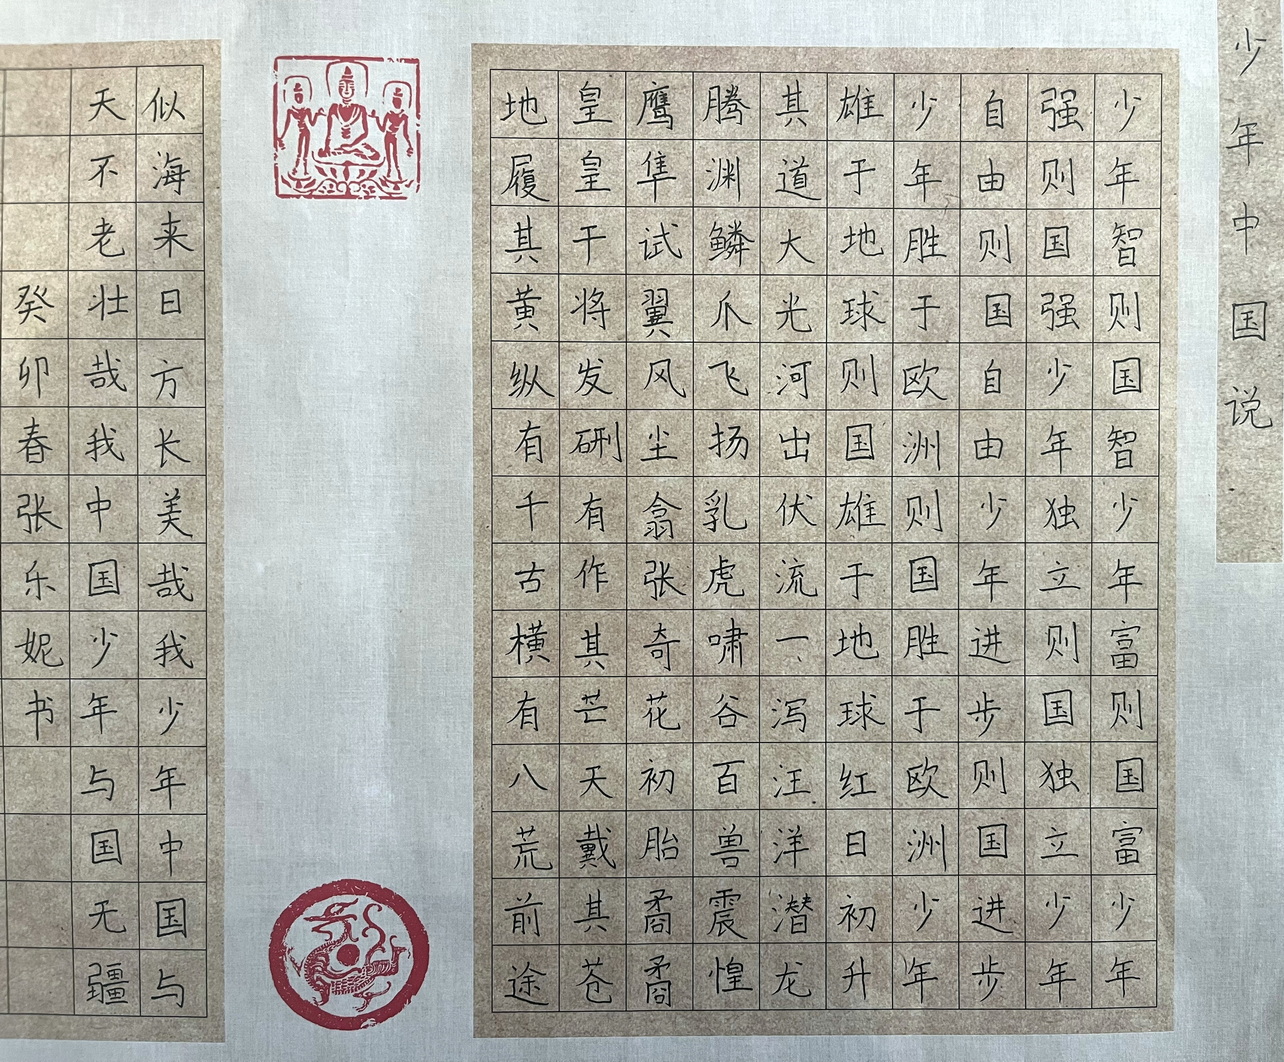 少年中国说
少年智则国智少年富则国富少年
强则国强少年独立则国独立少年
自由则国自由少年进步则国进步
少年胜于欧洲则国胜于欧洲少年
雄于地球则国雄于地球红日初升
其道大光河出伏流一泻汪洋潜龙
腾渊鳞爪飞扬乳虎啸谷百兽震惶
鹰隼试翼风尘翕张奇花初胎矞矞
皇皇干将发硎有作其芒天戴其苍
地履其黄纵有千古横有八荒前途
似海来日方长美哉我少年中国与
天不老壮哉我中国少年与国无疆
癸卯春张乐妮书